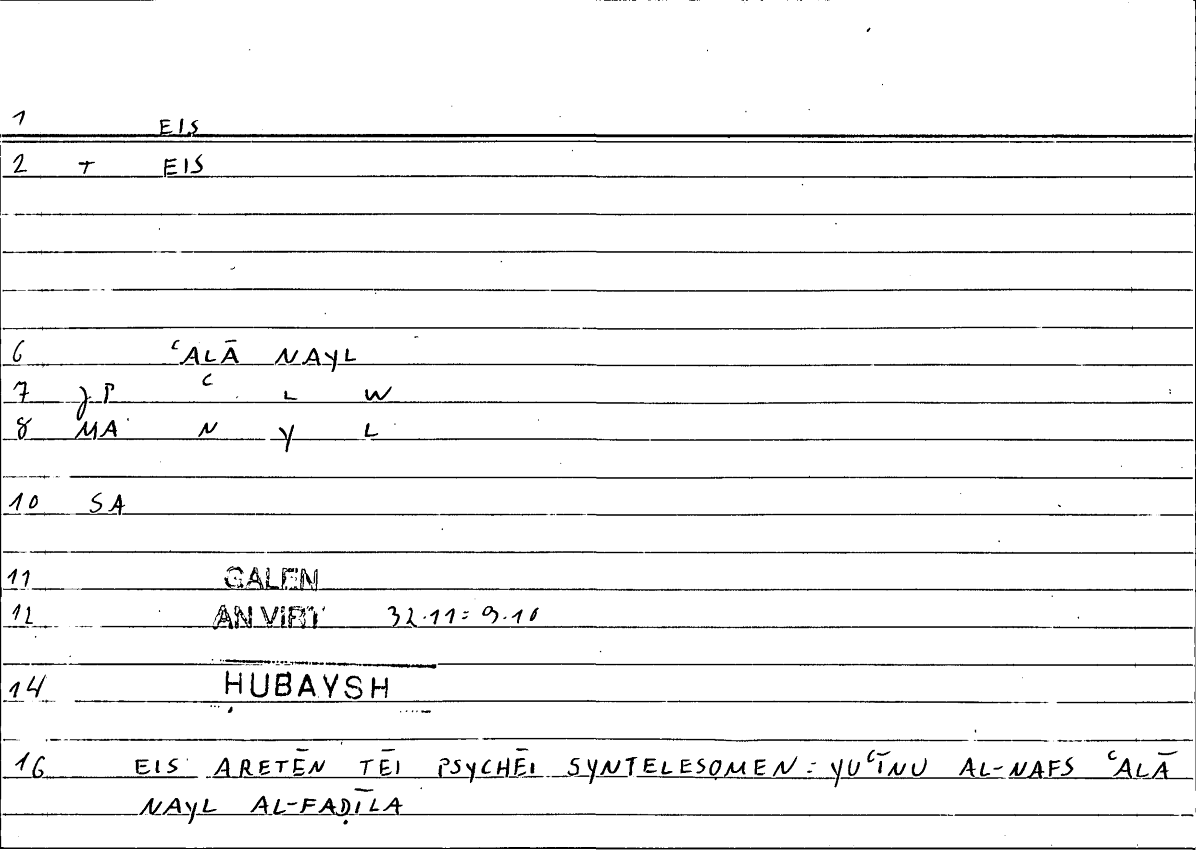 1 EIS
2 T EIS
6 ʿALĀ NAYL
7 JP ʿ L W
8 MA N Y L
10 SA
11 GALEN
12 AN VIRT 32.11=9.10
14 HUBAYSH
16 EIS ARETĒN TĒI PSYCHĒI SYNTELESOMEN = YUʿĪNU AL-NAFS ʿALĀ
NAYL AL-FAḌĪLA